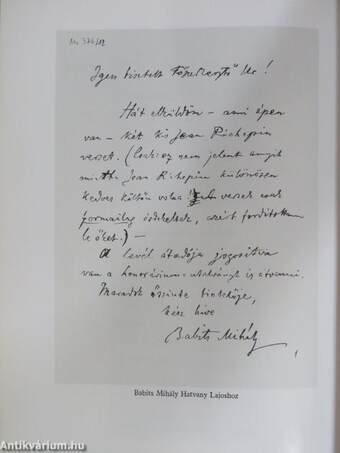 Ms 376/12
Igen tisztelt Főszerkesztő Úr!
Hát elküldöm – ami épen
van – két kis Jean Richepin
verset. (Csakhogy ez nem jelent annyit
mintha Jean Richepin különösen
kedves költőm volna. versek csak
formailag érdekeltek, azért fordítottam
le őket.) –
A levél átadója jogosítva
van a honorárium-utalványt is átvenni.
Maradok őszinte tisztelője,
kész híve
Babits Mihály
Babits Mihály Hatvany Lajoshoz
Antikvárium.hu